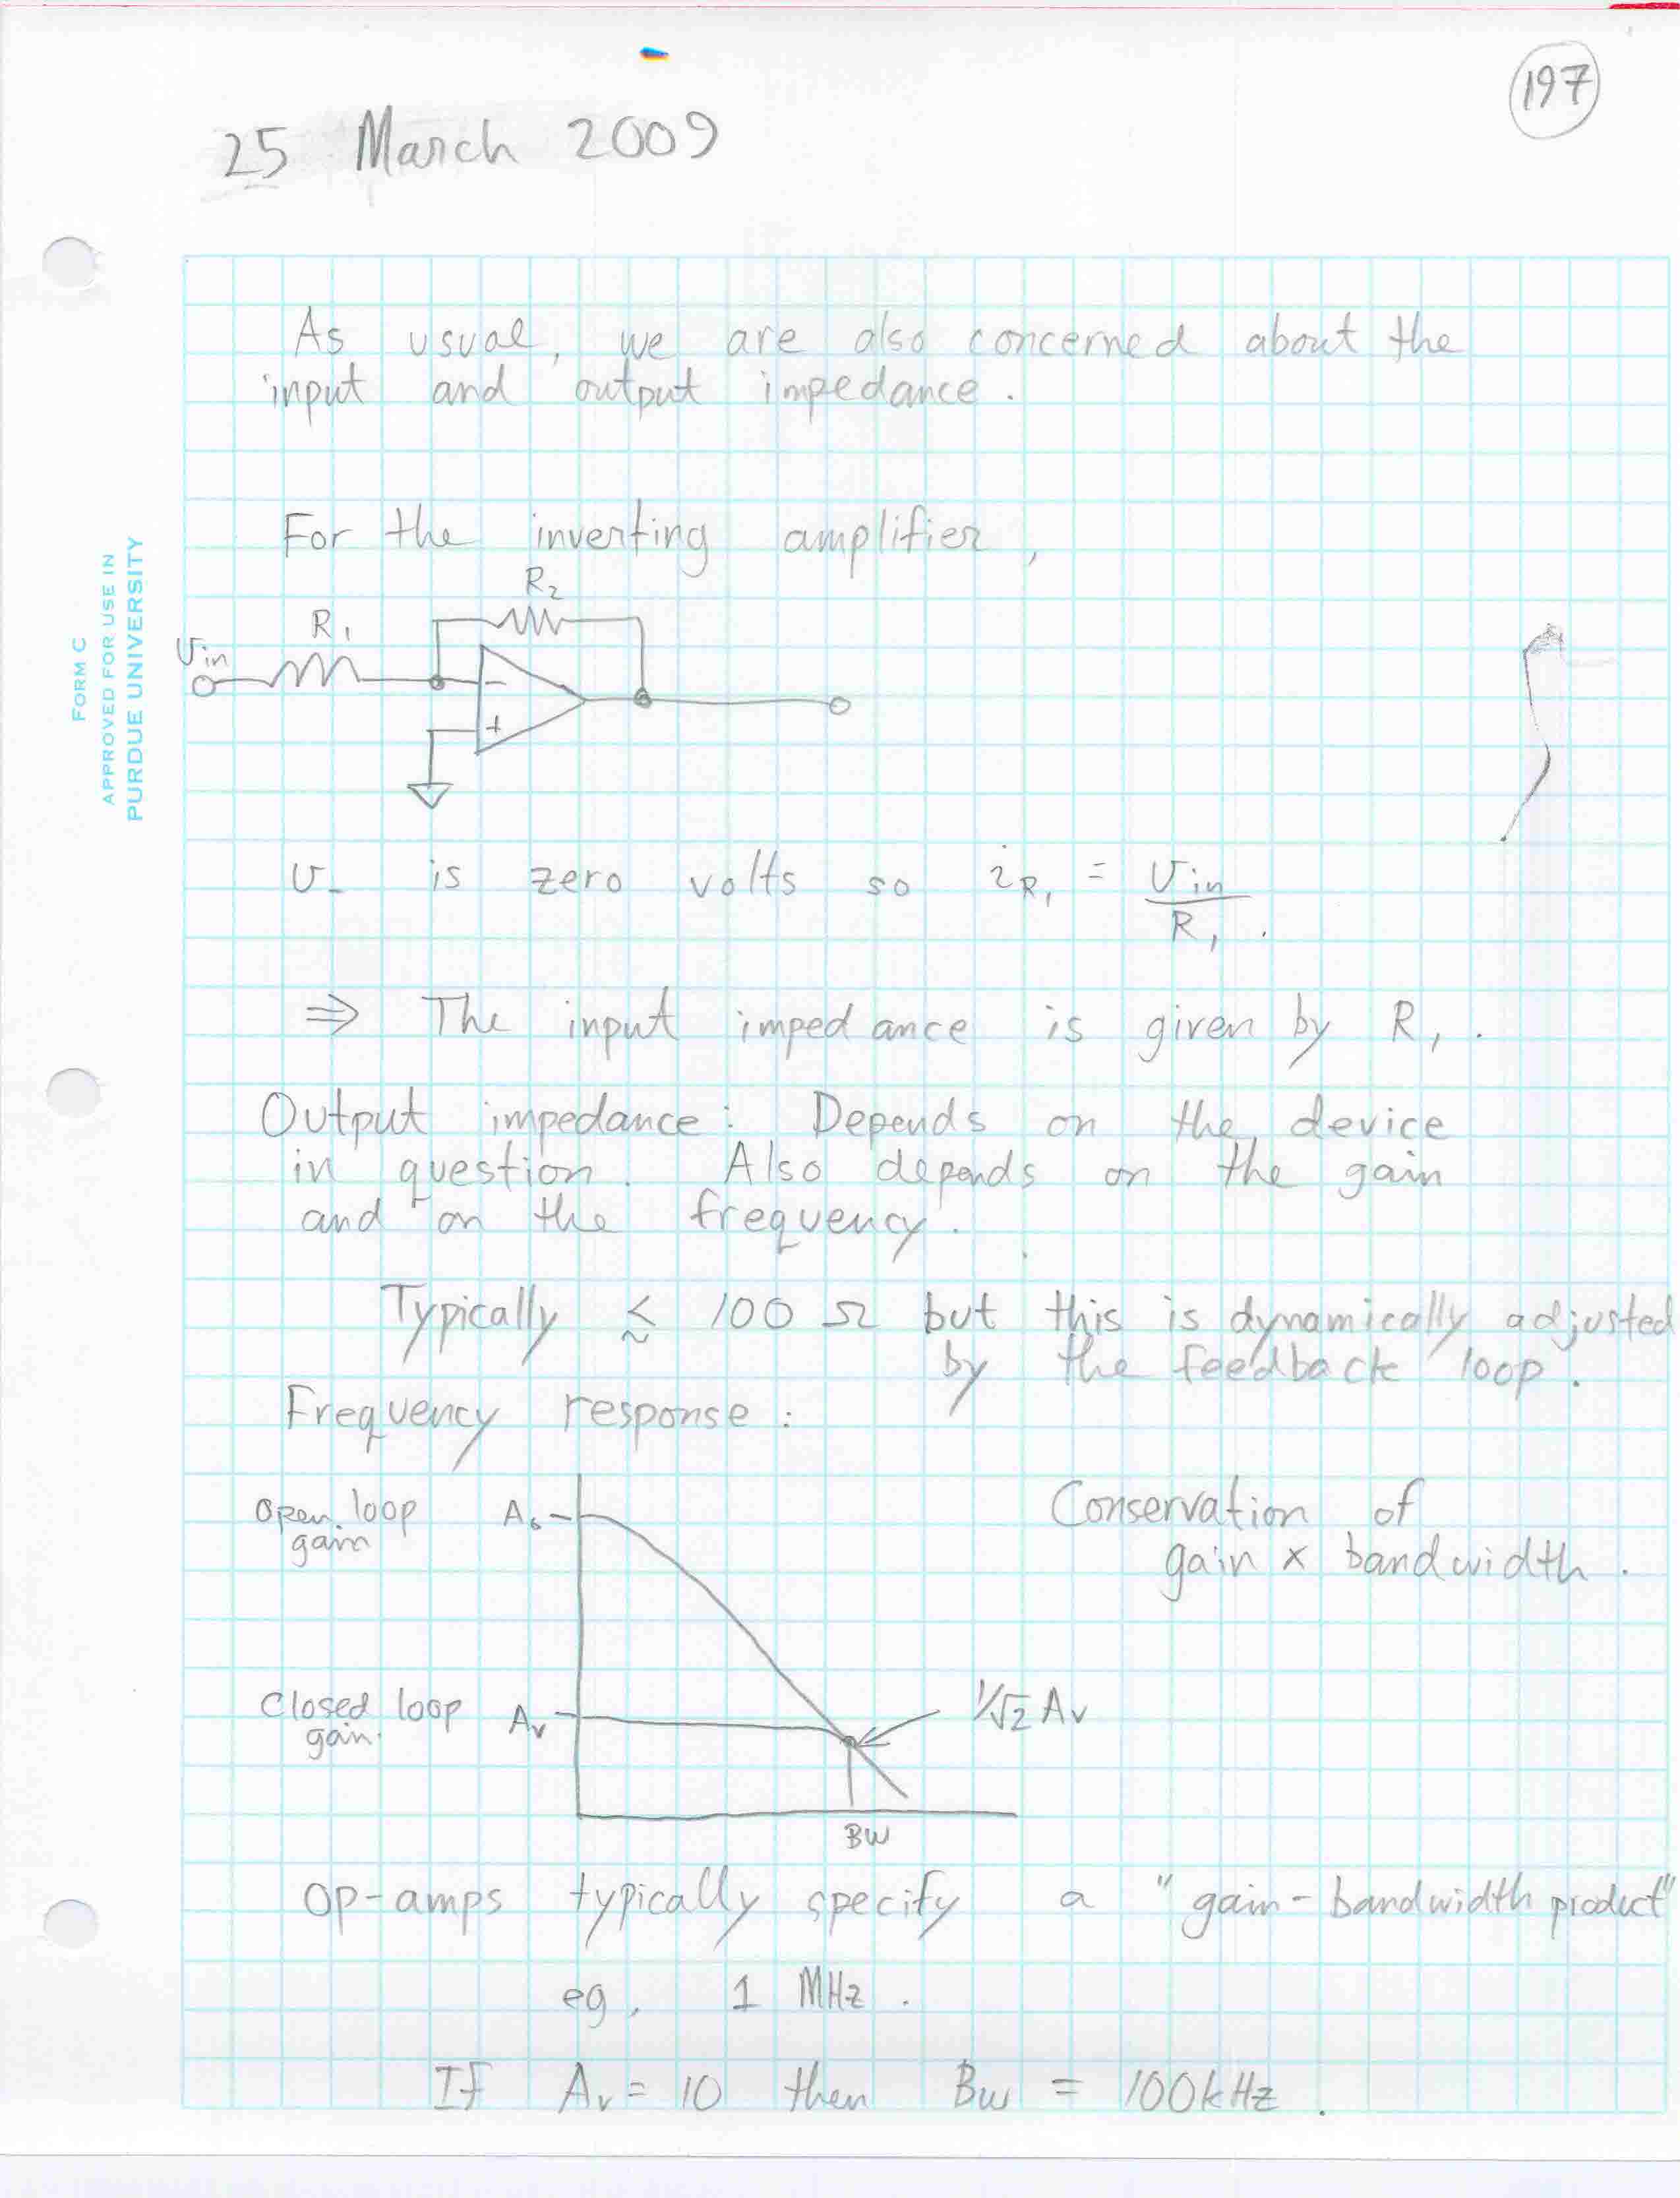 197
25 March 2009
FORM C
APPROVED FOR USE IN
PURDUE UNIVERSITY
As usual, we are also concerned about the
input and output impedance.
For the inverting amplifier,
R₂
R₁
υin
−
+
υ₋ is zero volts so iR₁ = υin / R₁ .
⇒ The input impedance is given by R₁ .
Output impedance: Depends on the device
in question. Also depends on the gain
and on the frequency.
Typically ≲ 100 Ω but this is dynamically adjusted
by the feedback loop.
Frequency response:
Open loop A₀
gain
Conservation of
gain × bandwidth.
Closed loop Av
gain.
1/√2 Av
BW
Op-amps typically specify a "gain-bandwidth product"
eg. 1 MHz.
If Av = 10 then BW = 100kHz.